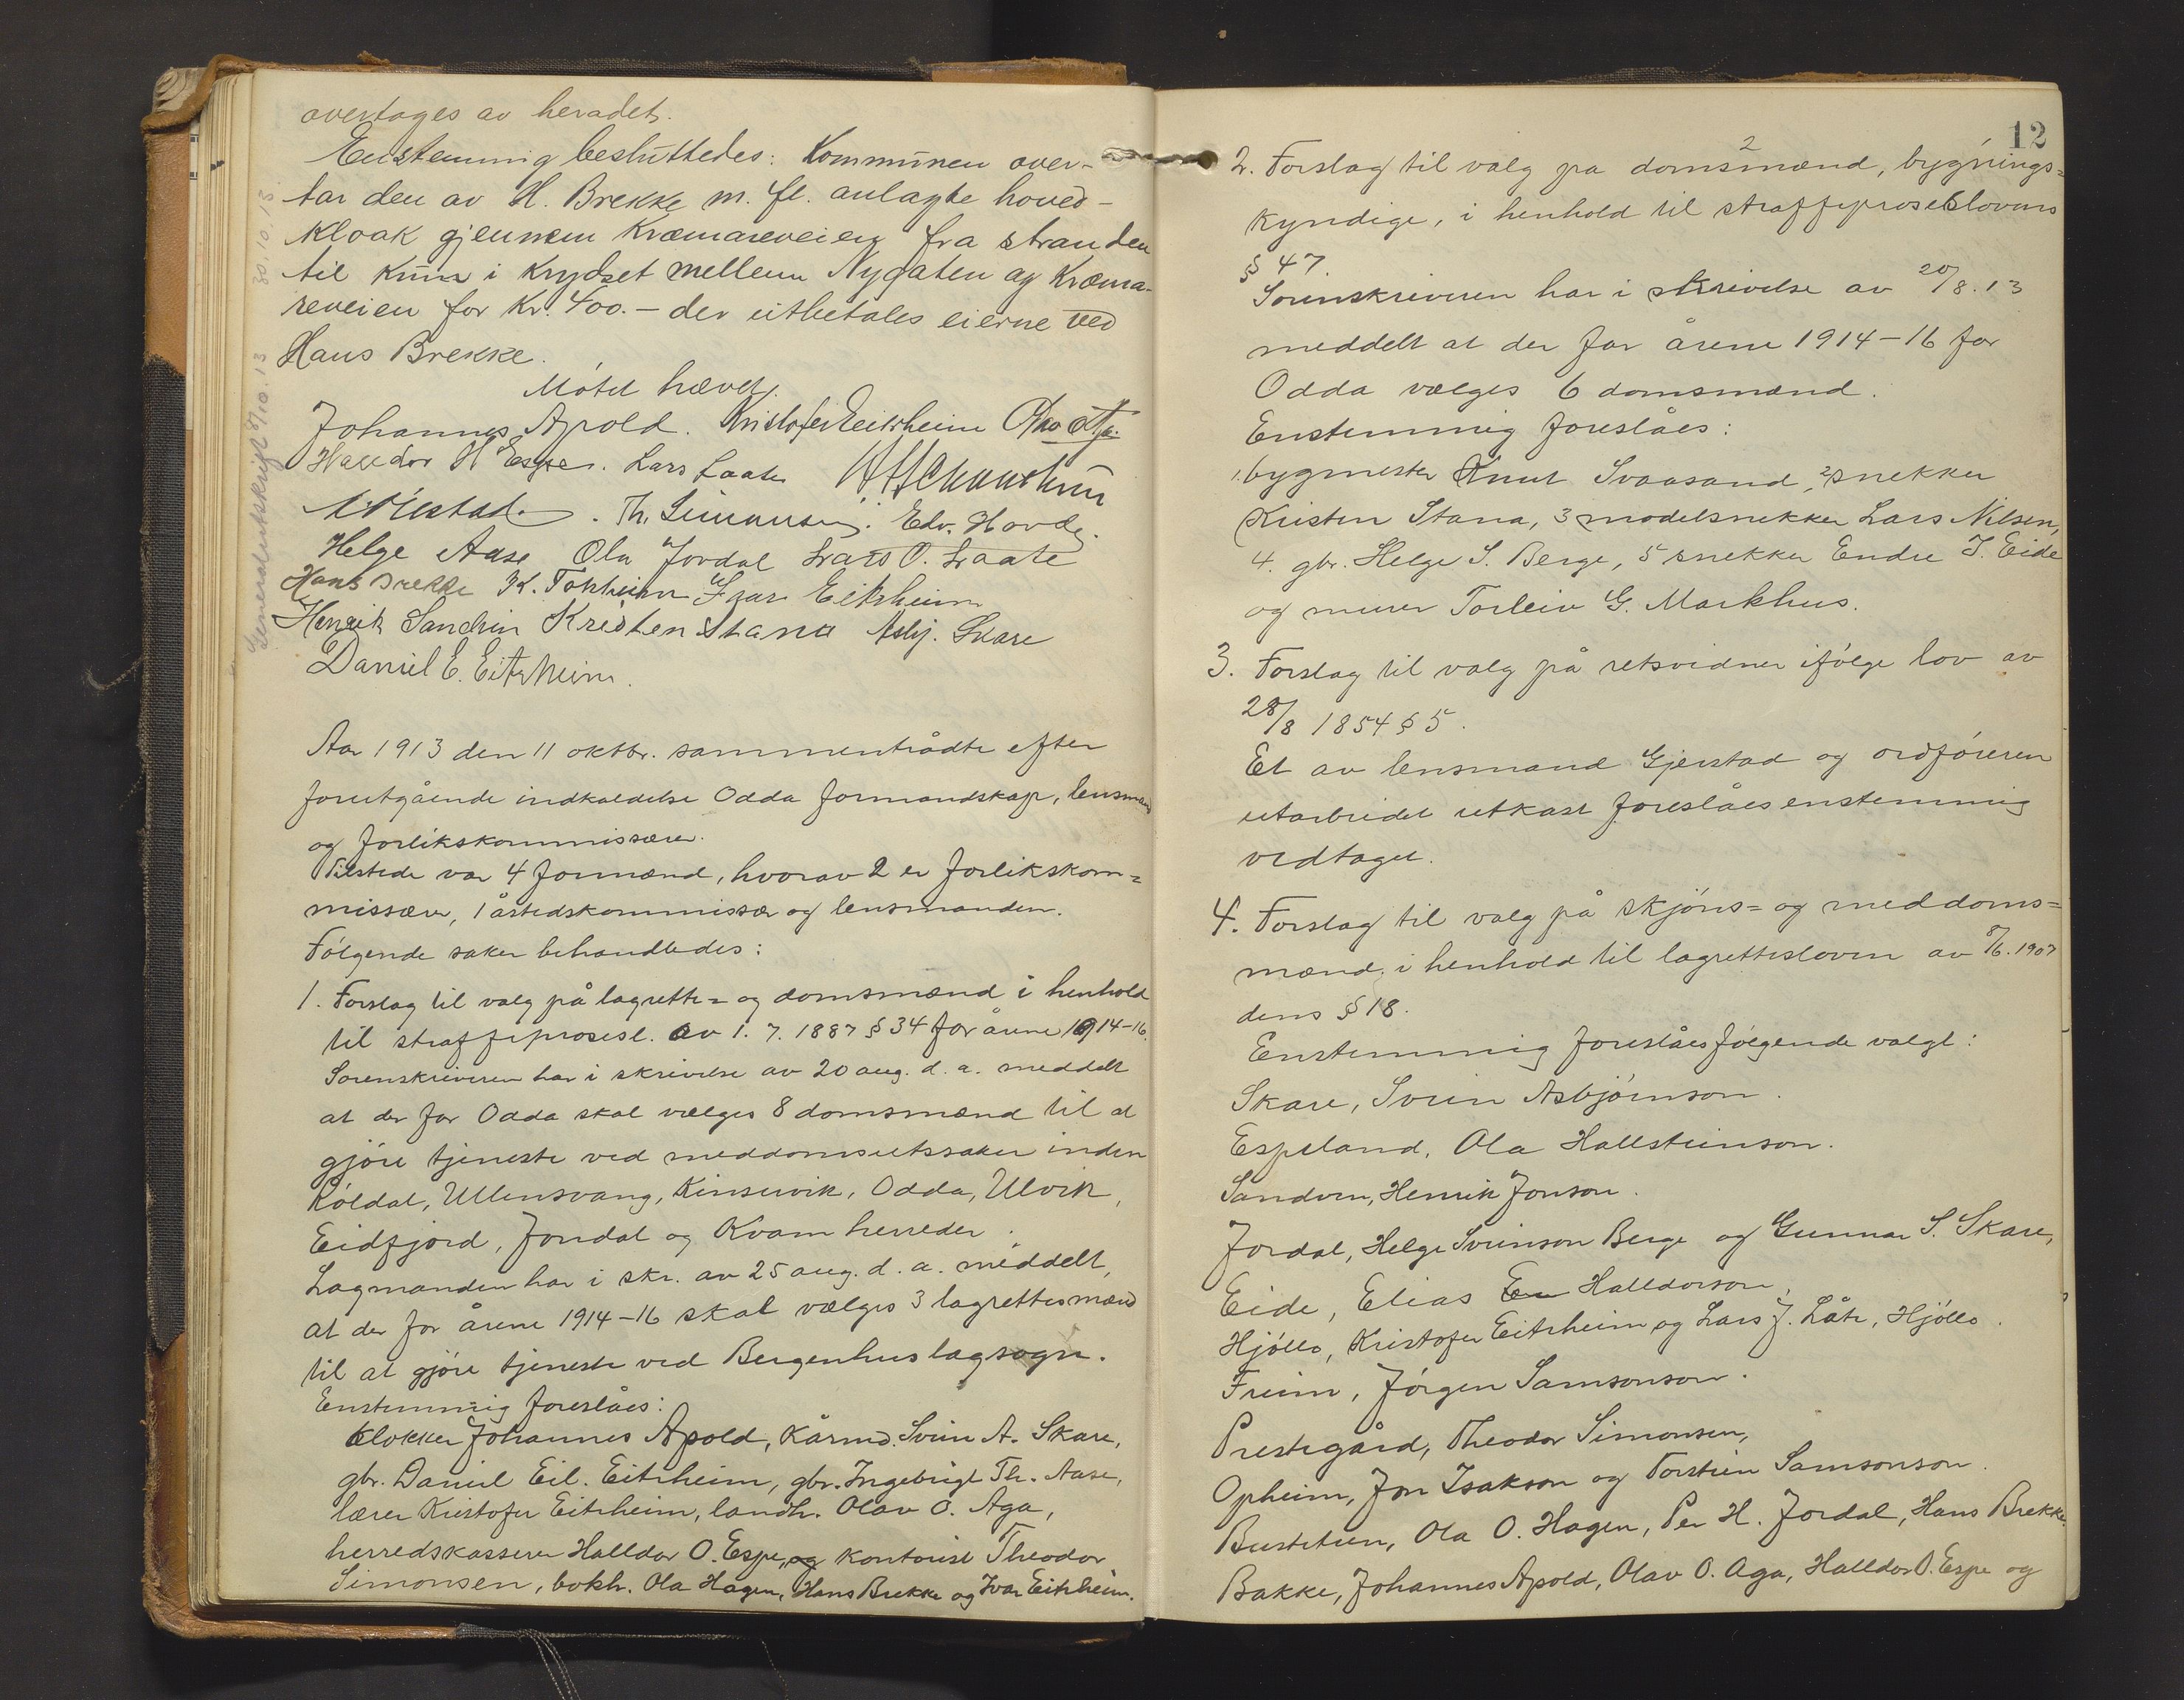 overtages av heradet.
Enstemmig besluttedes: Kommunen over-
tar den av H. Brekke m. fl. anlagte hoved-
kloak gjennem Kræmareveien fra stranden
til kum i krydset mellem Nygaten og Kræma-
reveien for Kr. 400.- der utbetales eierne ved
Hans Brekke.
Møtet hævet.
Johannes Apold. Kristofer Eitrheim
Halldor H Espe. Lars Laate
Th. Simonsen. Edv. Hovde.
Helge Aase Ola Jordal Lars O. Laate
Hans Brekke K. Tokheim Ivar Eitrheim
Henrik Sandvin Kristen Stana Asbj. Skare
Daniel E. Eitrheim.
Generalutskrift 8/10.13 30.10.13
Aar 1913 den 11 oktbr. sammentrådte efter
forutgående indkaldelse Odda formandskap, lensmand
og forlikskommissærer.
Tilstede var 4 formænd, hvorav 2 er forlikskom=
missærer, 1 åstedskommissær og lensmanden.
Følgende saker behandledes:
1. Forslag til valg på lagrette= og domsmænd i henhold
til straffeprosesl. av 1. 7. 1887 § 34 for årene 1914-16.
Sorenskriveren har i skrivelse av 20 aug. d. a. meddelt
at der for Odda skal vælges 8 domsmænd til at
gjøre tjeneste ved meddomsretssaker inden
Røldal, Ullensvang, Kinservik, Odda, Ulvik,
Eidfjord, Jondal og Kvam herreder.
Lagmanden har i skr. av 25 aug. d. a. meddelt,
at der for årene 1914-16 skal vælges 3 lagrettesmænd
til at gjøre tjeneste ved Bergenhus lagsogn.
Enstemmig foreslåes:
Klokker Johannes Apold, kårmd. Svein A. Skare,
gbr. Daniel Eil. Eitrheim, gbr. Ingebrigt Th. Aase,
lærer Kristofer Eitrheim, landh. Olav O. Aga,
herredskasserer Halldor O. Espe, og kontorist Theodor
Simonsen, bokh. Ola Hagen, Hans Brekke og Ivar Eitrheim.
12
2. Forslag til valg pa 2 domsmænd, bygnings=
kyndige, i henhold til straffeproseslovens
§ 47.
Sorenskriveren har i skrivelse av 20/8.13
meddelt at der for årene 1914-16 for
Odda vælges 6 domsmænd.
Enstemmig foreslåes:
1. bygmester Knut Svaasand, 2 snekker
Kristen Stana, 3 modelsnekker Lars Nilsen,
4. gbr. Helge S. Berge, 5 snekker Endre J. Eide
og murer Torleiv G. Markhus.
3. Forslag til valg på retsvidner ifølge lov av
28/8 1854 § 5.
Et av lensmand Gjerstad og ordføreren
utarbeidet utkast foreslåes enstemmig
vedtaget.
4. Forslag til valg på skjøns= og meddoms=
mænd, i henhold til lagretteloven av 8/6.1907
dens § 18.
Enstemmig foreslåes følgende valgt:
Skare, Svein Asbjørnson.
Espeland, Ola Hallsteinson.
Sandven, Henrik Jonson.
Jordal, Helge Sveinson Berge og Gunnar S. Skare,
Eide, Elias Halldorson,
Hjøllo, Kristofer Eitrheim og Lars J. Låte, Hjøllo.
Freim, Jørgen Samsonson.
Prestegård, Theodor Simonsen,
Opheim, Jon Isakson og Torstein Samsonson.
Bustetun, Ola O. Hagen, Per H. Jordal, Hans Brekke.
Bakke, Johannes Apold, Olav O. Aga, Halldor O. Espe og